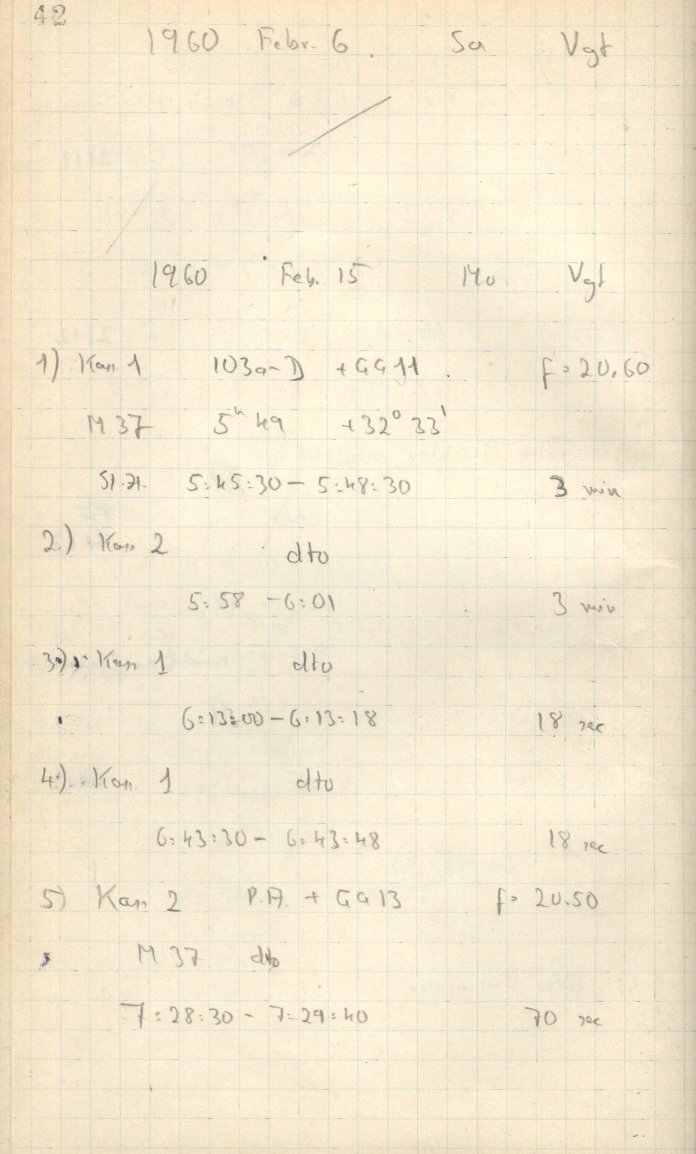 42
1960 Febr. 6. Sa Vgt
1960 Feb. 15 Mo Vgt
1) Kass 1 103a-D + GG 11. f = 20.60
M 37 5h 49 +32° 33'
St.Z. 5:45:30 - 5:48:30 3 min
2.) Kass 2 dto
5:58 - 6:01 3 min
3.) Kass 1 dto
6:13:00 - 6:13:18 18 sec
4.) Kass. 1 dto
6:43:30 - 6:43:48 18 sec
5) Kass 2 P.A. + GG 13 f = 20.50
M 37 dto
7:28:30 - 7:29:40 70 sec